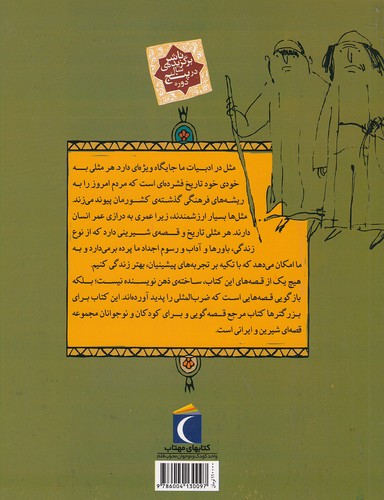 ناشر
برگزیده‌ی
سال
در پنج
دوره
مثل در ادبیات ما جایگاه ویژه‌ای دارد. هر مثلی بـــه
خودی خود تاریخ فشرده‌ای است که مردم امروز را به
ریشه‌های فرهنگی گذشته‌ی کشورمان پیوند می‌زند.
مثل‌ها بسیار ارزشمندند، زیرا عمری به درازی عمر انسان
دارند. هر مثلی تاریخ و قصه‌ی شیرینی دارد که از نوع
زندگی، باورها و آداب و رسوم اجداد ما پرده برمی‌دارد و به
ما امکان می‌دهد که با تکیه بر تجربه‌های پیشینیان، بهتر زندگی کنیم.
هیچ یک از قصه‌های این کتاب، ساخته‌ی ذهن نویسنده نیست؛ بلکه
بازگویی قصه‌هایی است که ضرب‌المثلی را پدید آورده‌اند. این کتاب برای
بزرگترها کتاب مرجع قصه‌گویی و بـــرای کودکان و نوجوانان مجموعه
قصه‌ای شیرین و ایرانی است.
کتابهای مهتاب
واحد کودک و نوجوان محراب قلم
9 786004 130097